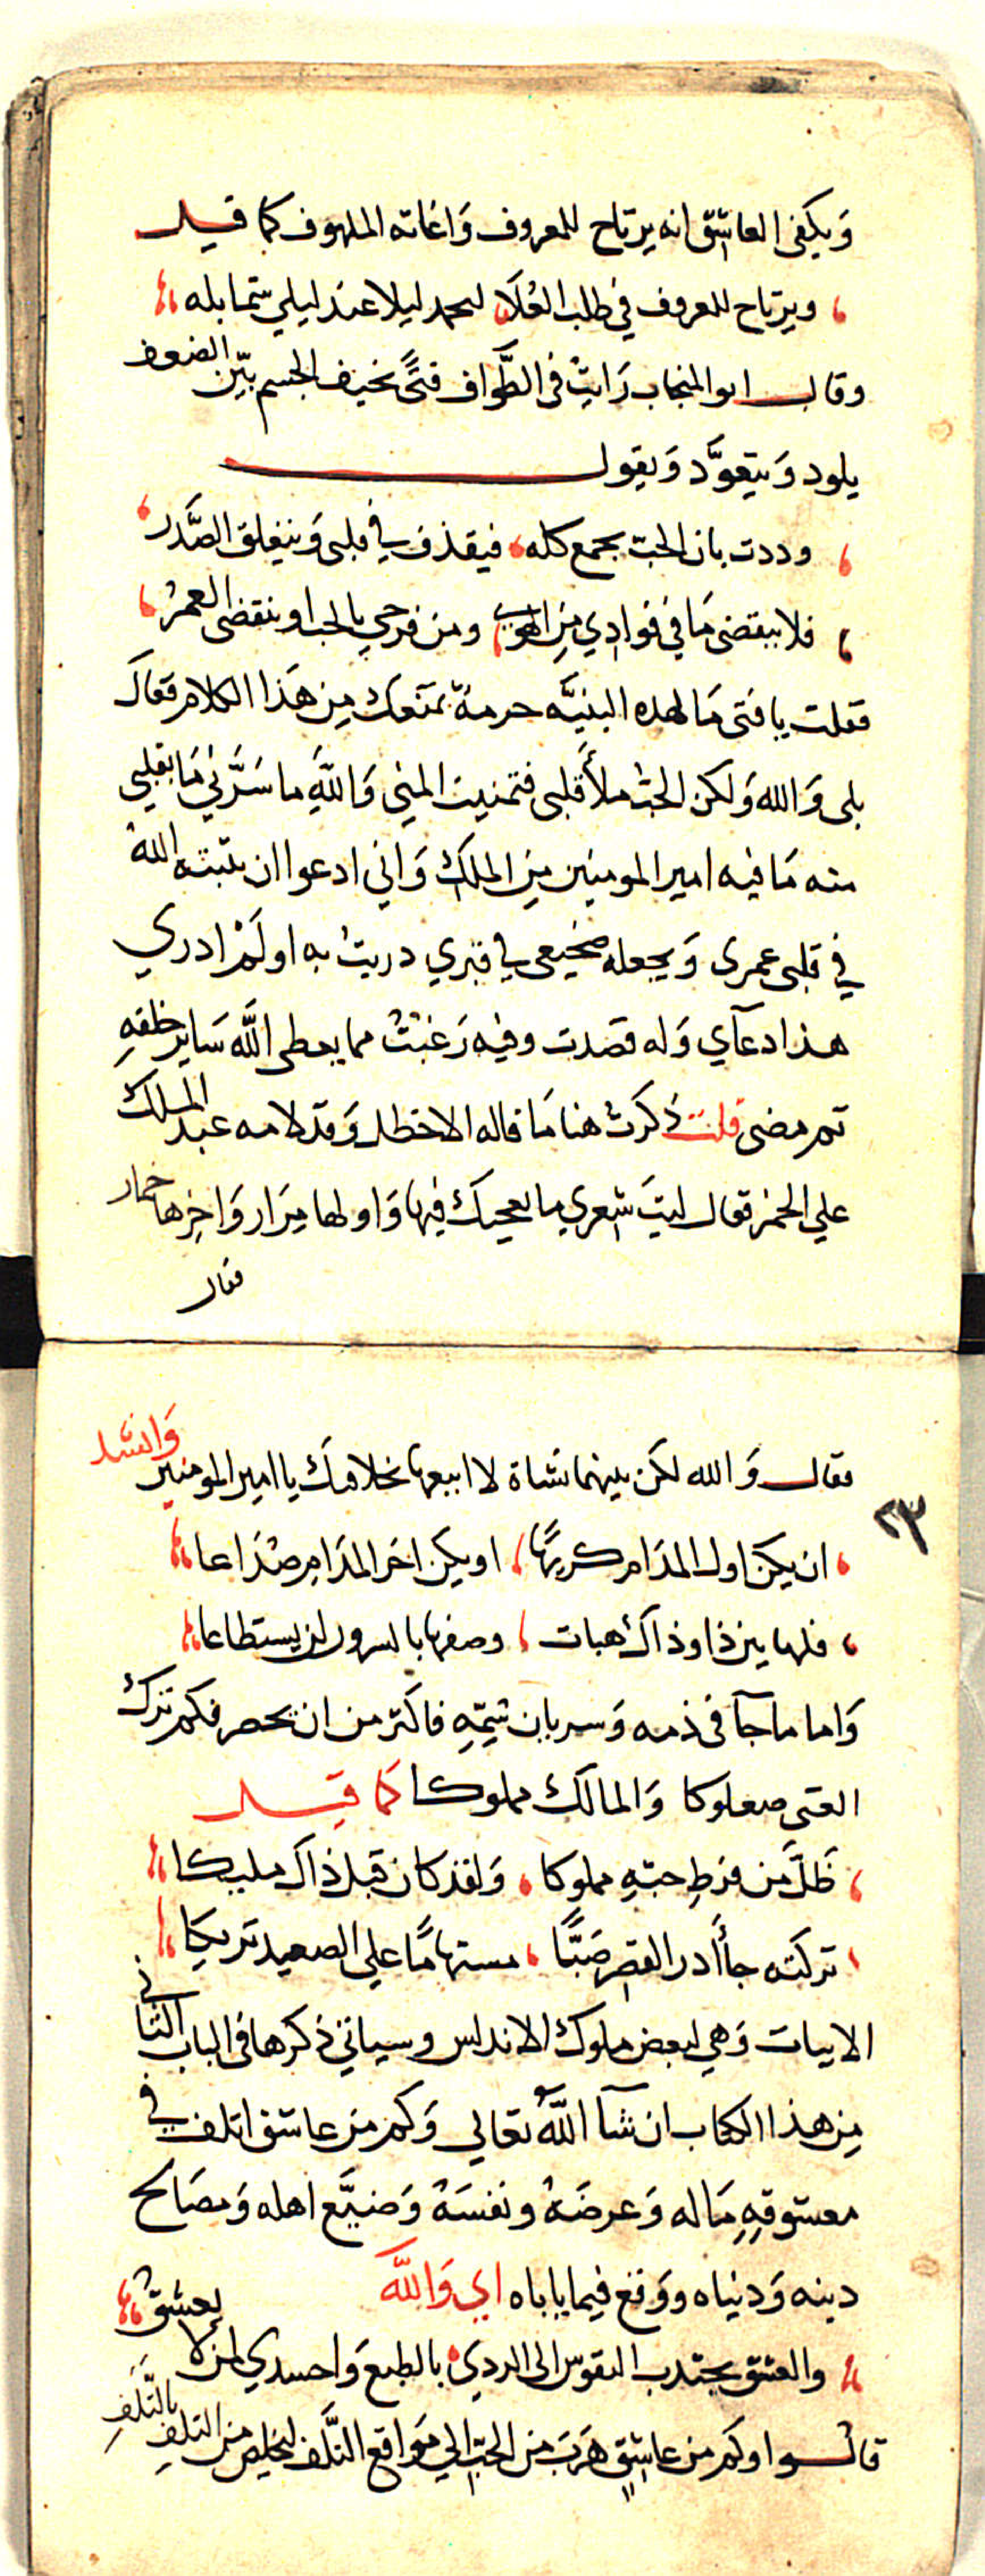 ويكفى العاشق انه يرتاح للمعروف وَاغاثه الملهوف كما قيل
ويرتاح للمعروف في طلب العُلَا لتحمد ليلا عند ليلي شمايله
وقال ابو المنجاب رَايتُ فى الطَّواف فتًى نحيف الجسم بيّن الضعف
يلود وَيتعوَّد وَيقول
وددت بان الحب يجمع كله فيقذف في قلبى وَينغلق الصَّدر
فلا ينقضى مَا في فوادي مِن الهوى ومن فرحي بالحب او ينقضى العمرُ
فقلت يا فتى مَا لهده البنيَّه حرمة تمنعك مِن هَذا الكلام فقالَ
بلى وَالله وَلكن الحبّ ملأَ قلبى فتمنيت المنى وَاللَّهِ ما سَرَّنِي مَا بقلبي
منه مَا فيه امير المومنين مِن الملك وَاني ادعوا ان يثبته اللهُ
في قلبى عمرى وَيجعله ضجيعى في قبري دريتُ به او لَمْ ادري
هذا دعآي وَله قصَدت وفيه رَغبْتُ مما يعطى اللَّه سَاير خلقهِ
ثم مضى قلت ذكرتُ هنا مَا قاله الاخطل وَقد لامه عبد الملك
علي الخمر فقال ليتَ شعري ما يعجبك فيها وَاولها مِرَار وَاخِرها خمار
فقال
فقال وَالله لكن بينهما نشاة لا ابيعها بخلافتك يا امير المومنين وَانشد
٢٣
ان يكن اول المدَام كريهًا او يكن اخر المدَام صُدَاعا
فلها بين ذا وذاك هبات وصفها بالسرور لن يستطاعا
وَاما ما جآ فى ذمه وَسريان سُمِّهِ فاكثر من ان يحصر فكم تركَ
الغنى صعلوكا وَالمالك مملوكا كما قيل
ظَلَّ من فرطِ حبّهِ مملوكا وَلقد كان قبل ذاك مليكا
تركته جآأدر القصر صَبًّا مستهامًا علي الصعيد تريكَا
الابيات وَهي لبعض ملوك الاندلس وسياتي ذكرها فى الباب الثانى
مِن هذا الكتاب ان شآ اللَّهُ تعالى وَكم من عاشق اتلف في
معشوقهِ مَاله وَعرضَهُ ونفسَهُ وَضيَّع اهله وَمصَالح
دينه وَدنياه ووَقع فيما ياباه اي وَاللَّه
والعشق يجتدب النفوس الى الردي بالطبع وَاحسدي لمن لا يعشقُ
قالوا وكم من عاشقٍ هَرَبَ من الحبّ الي مَواقع التَّلف ليخلص من التلفِ بالتَّلفِ